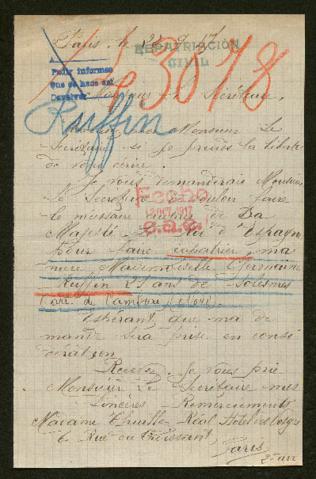 Paris le 21 9 17
REPATRIACION
CIVIL
A
Pedir informes
Que se hace así
3878
Monsieur le Secrétaire,
Ruffin
Monsieur le
Secrétaire si je prends la liberté
de vous écrire.
Je vous demanderais Monsieur
le Secrétaire de vouloir faire
le nécessaire de Sa
Majesté d'Espagne
pour faire rapatrier ma
nièce Mademoiselle Germaine
Ruffin 21 ans de Solesmes
Fecho
OCT. 1917
Espérant que ma de
mande sera prise en consi
dération
Recevez je vous prie
Monsieur le Secrétaire mes
Sincères Remerciements
Madame
6 Rue du Croissant,
Paris
2e arr